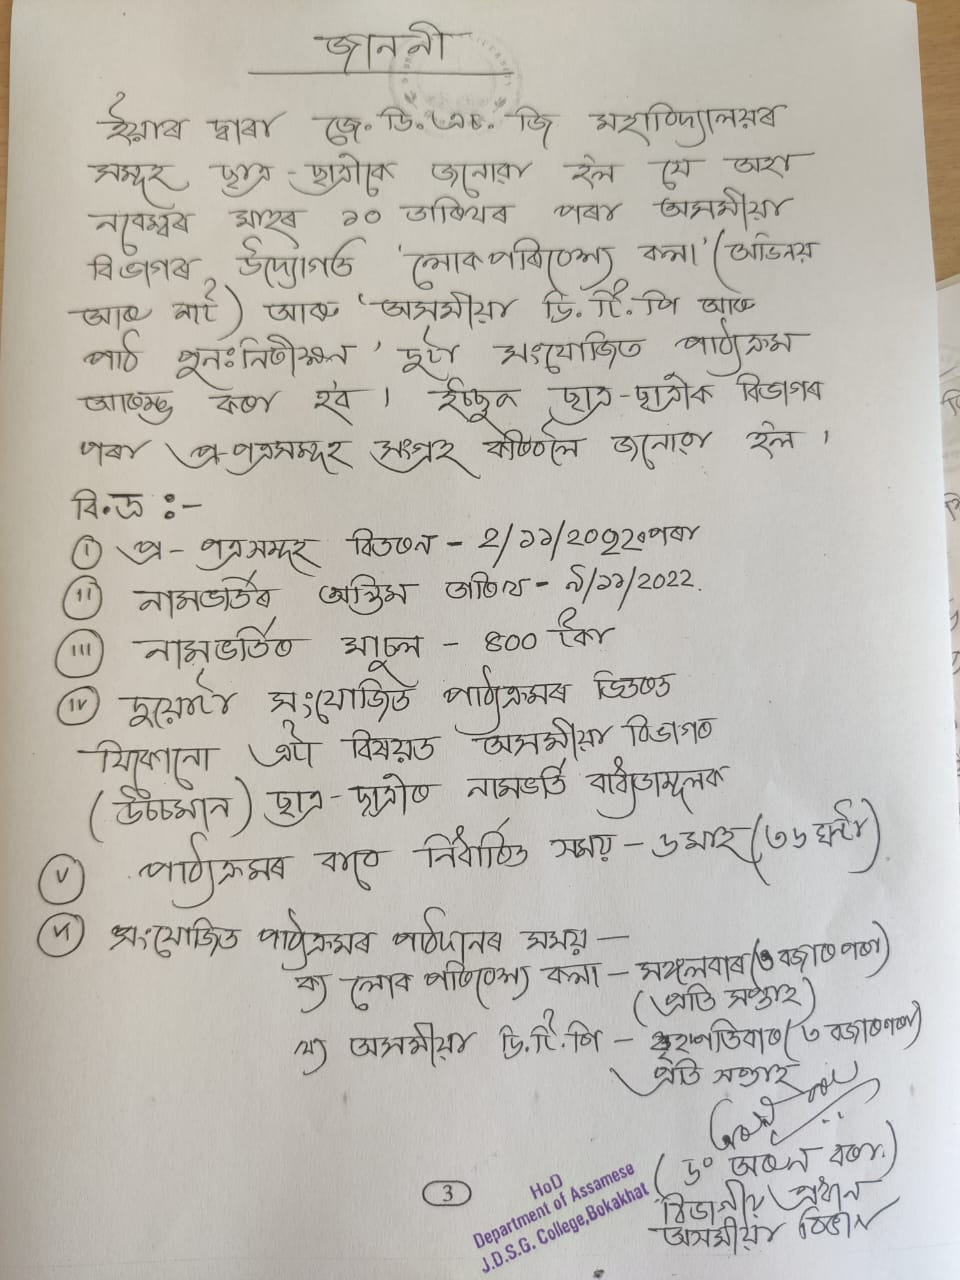 জাননী
ইয়াৰ দ্বাৰা জে. ডি. এছ. জি মহাবিদ্যালয়ৰ
সমূহ ছাত্ৰ-ছাত্ৰীকে জনোৱা হ'ল যে অহা
নৱেম্বৰ মাহৰ ১০ তাৰিখৰ পৰা অসমীয়া
বিভাগৰ উদ্যোগত 'লোকপৰিৱেশ্য কলা' (অভিনয়
আৰু নাট) আৰু 'অসমীয়া ডি. টি. পি আৰু
পাঠ পুনঃনিৰীক্ষন' দুটা সংযোজিত পাঠ্যক্ৰম
আৰম্ভ কৰা হ'ব । ইচ্ছুক ছাত্ৰ-ছাত্ৰীক বিভাগৰ
পৰা প্ৰ-পত্ৰসমূহ সংগ্ৰহ কৰিবলৈ জনোৱা হ'ল ।
বি.দ্ৰ :-
(i) প্ৰ-পত্ৰসমূহ বিতৰন - ২/১১/২০২২ৰ পৰা
(ii) নামভৰ্তিৰ অন্তিম তাৰিখ - ৯/১১/2022.
(iii) নামভৰ্তিৰ মাচুল - ৪০০ টকা
(iv) দুয়োটা সংযোজিত পাঠ্যক্ৰমৰ ভিতৰত
যিকোনো এটা বিষয়ত অসমীয়া বিভাগৰ
(উচ্চমান) ছাত্ৰ-ছাত্ৰীৰ নামভৰ্তি বাধ্যতামূলক
(v) পাঠ্যক্ৰমৰ বাবে নিৰ্ধাৰিত সময় - ৬ মাহ (৩৬ ঘন্টা)
(vi) সংযোজিত পাঠ্যক্ৰমৰ পাঠদানৰ সময় —
ক) লোক পৰিৱেশ্য কলা - মঙ্গলবাৰ (৩ বজাৰ পৰা)
(প্ৰতি সপ্তাহ)
খ) অসমীয়া ডি. টি. পি - বৃহস্পতিবাৰ (৩ বজাৰ পৰা)
প্ৰতি সপ্তাহ
(ড০ অৰুন বৰা)
বিভাগীয় প্ৰধান
অসমীয়া বিভাগ
3
HoD
Department of Assamese
J.D.S.G. College, Bokakhat